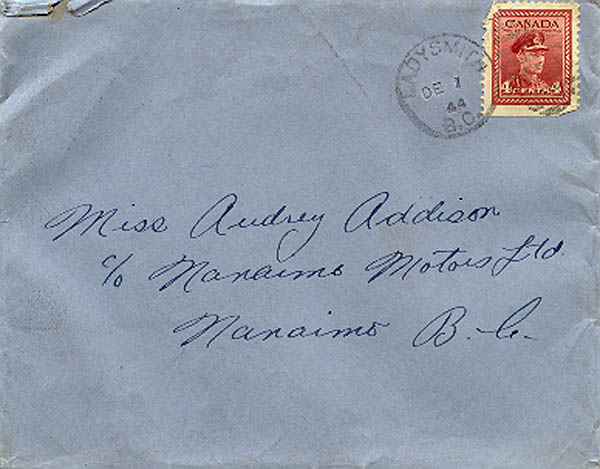 CANADA
4 CENTS 4
LADYSMITH
DE 1
44
B.C.
Miss Audrey Addison
c/o Nanaimo Motors Ltd.
Nanaimo B.C.